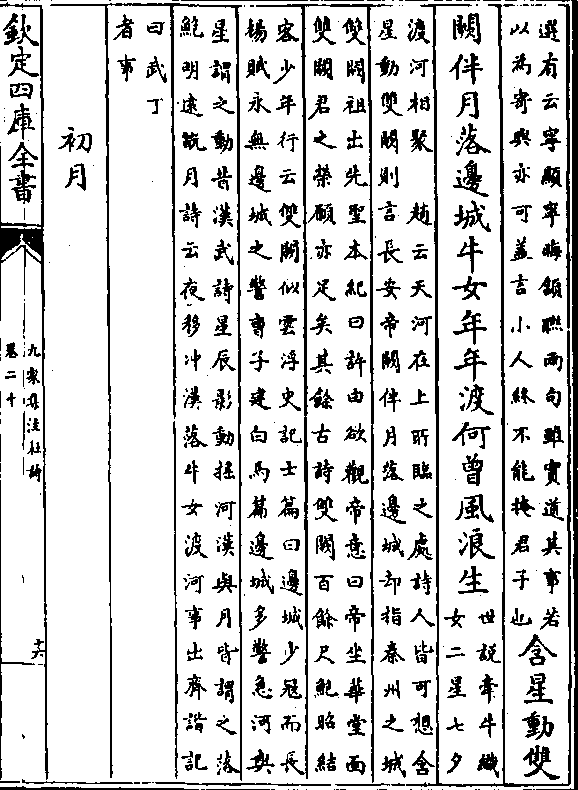 選有云寧顯寧晦頷聯兩句雖實道其事若
以為寄興亦可蓋言小人終不能掩君子也
含星動雙
闕伴月落邊城牛女年年渡何曾風浪生
世說牽牛織
女二星七夕
渡河相聚　趙云天河在上所臨之處詩人皆可想含
星動雙闕則言長安帝闕伴月落邊城却指秦州之城
雙闕祖出先聖本紀曰許由欲觀帝意曰帝坐華堂面
雙闕君之榮願亦足矣其餘古詩雙闕百餘尺鮑昭結
客少年行云雙闕似雲浮史記士篇曰邊城少冠而長
楊賦永無邊城之警曹子建白馬篇邊城多警急河與
星謂之動昔漢武詩星辰影動搖河漢與月皆謂之落
鮑明遠翫月詩云夜移冲漢落牛女渡河事出齊諧記
曰武丁
者事
初月
欽定四庫全書
九家集注杜詩
卷二十
十六